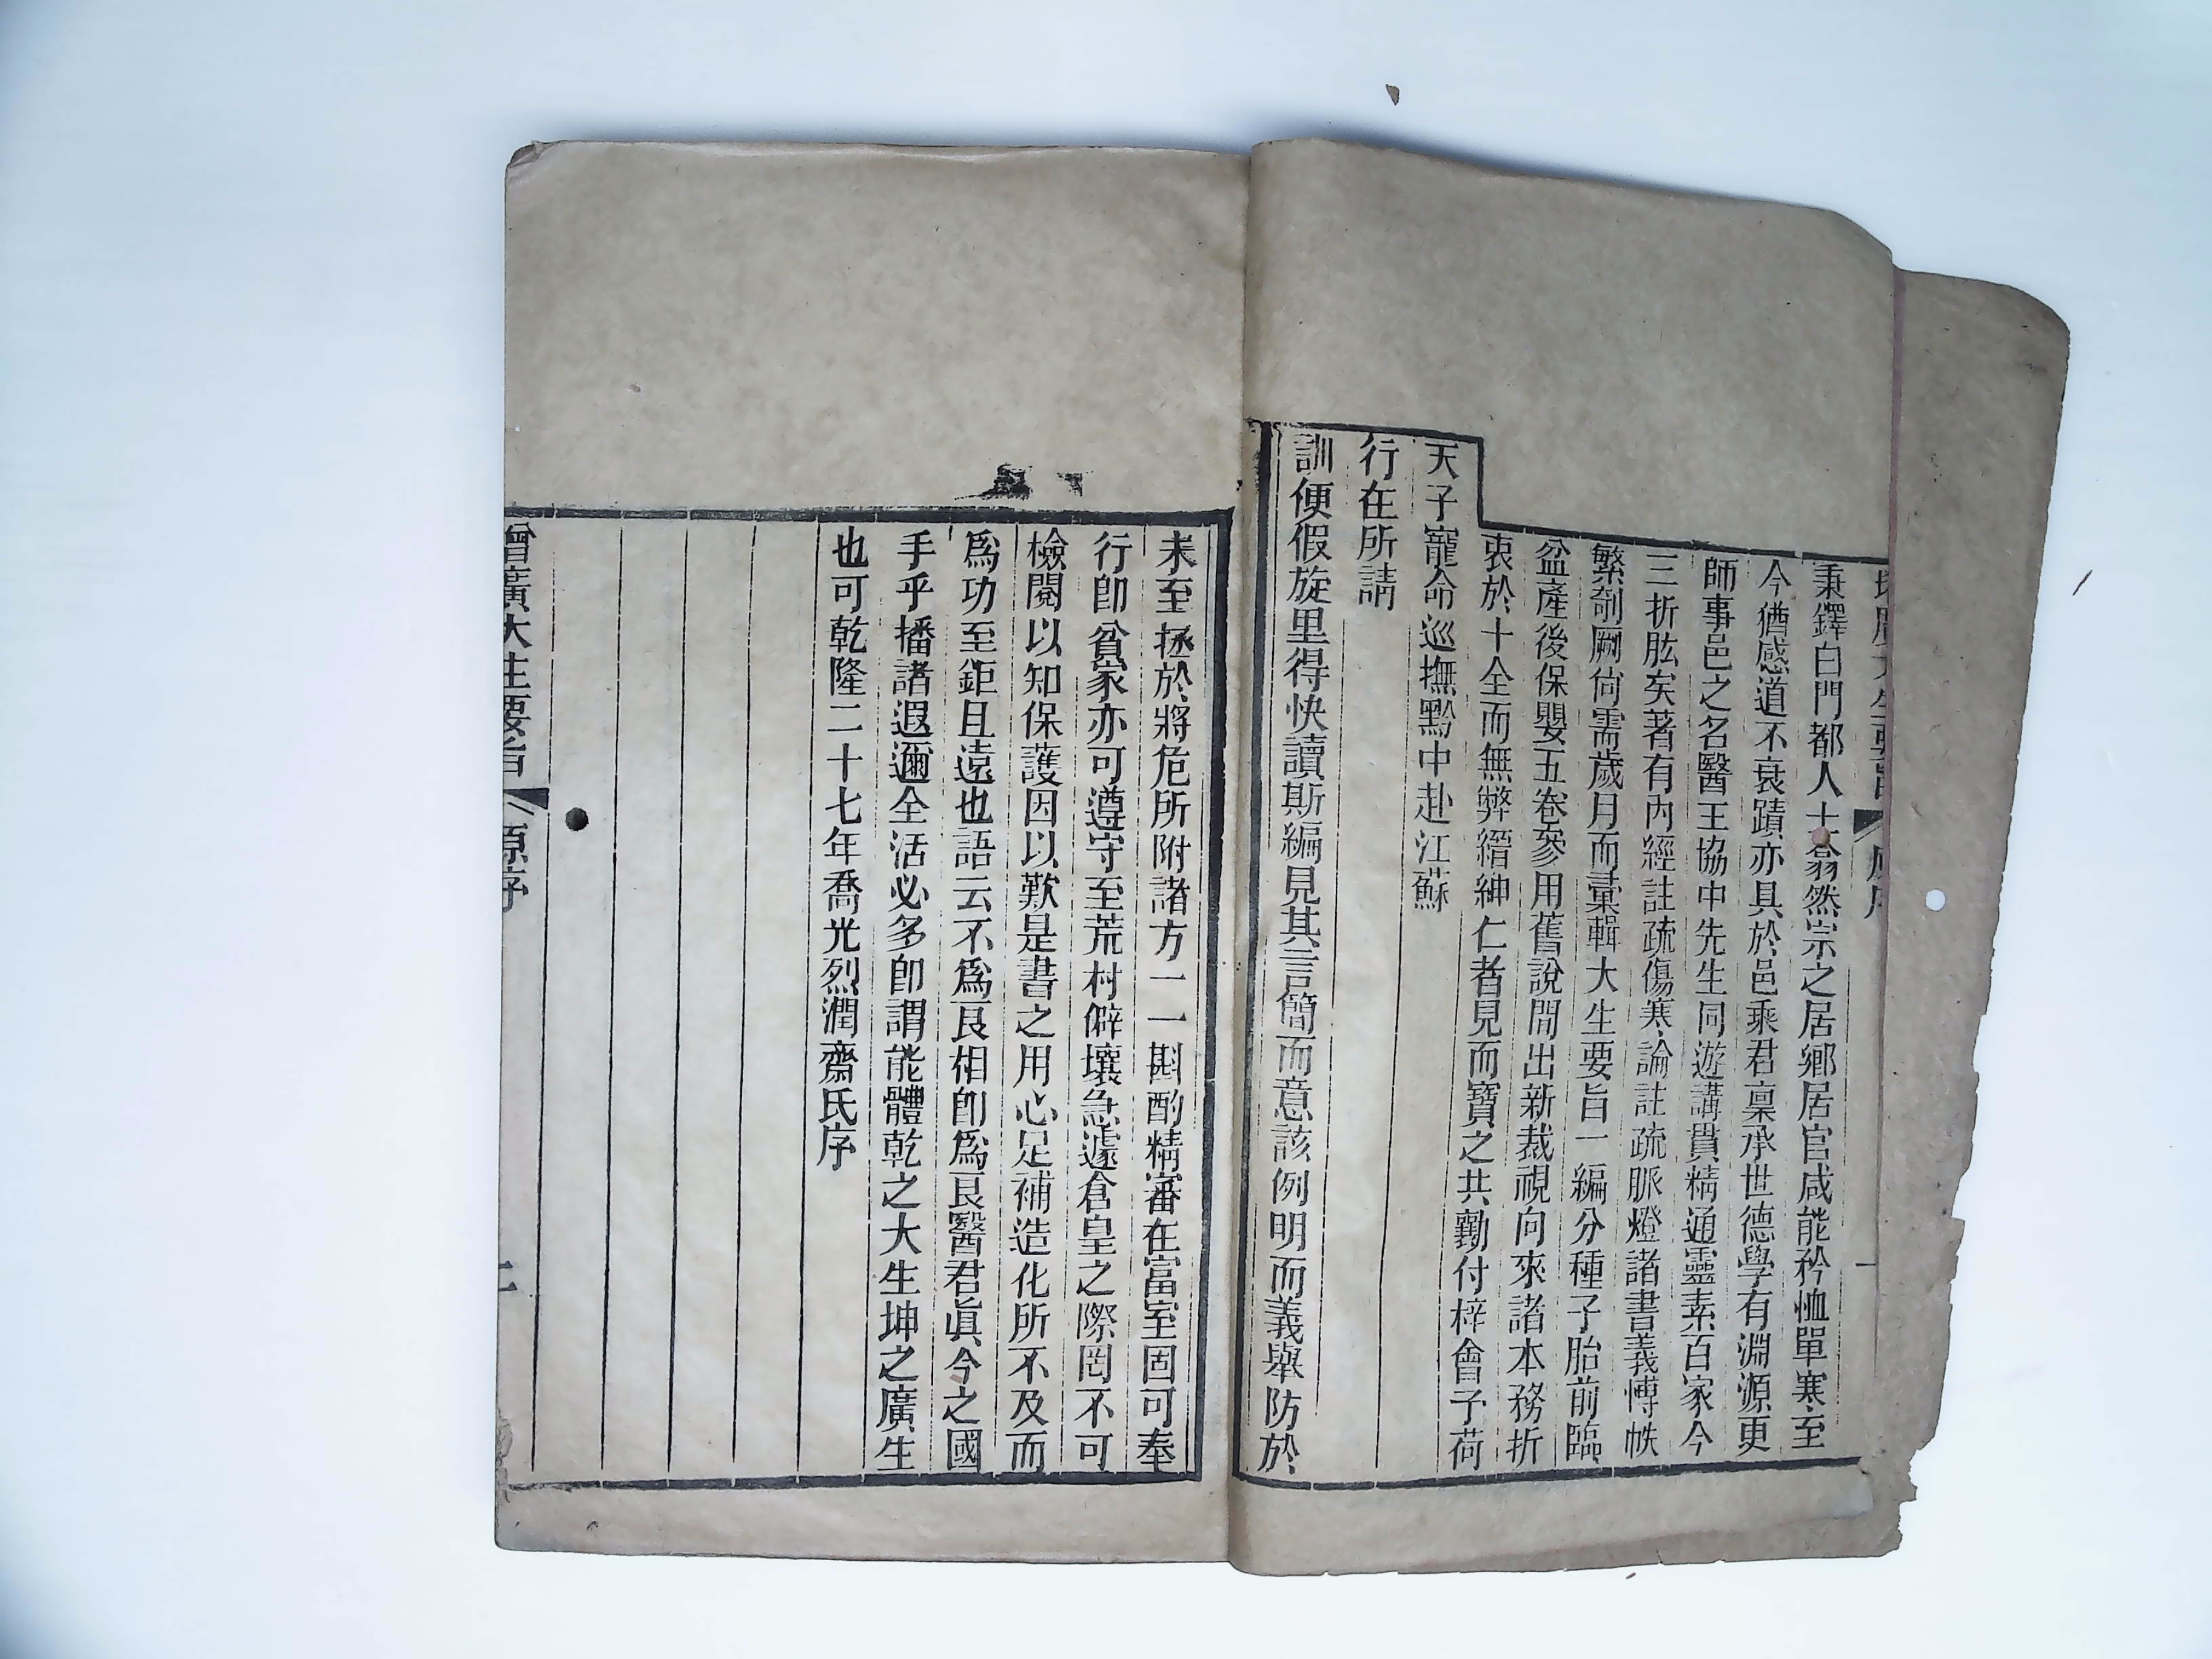 秉鐸白門都人士翕然宗之居鄉居官咸能矜恤單寒至
今猶感道不衰蹟亦具於邑乘君稟承世德學有淵源更
師事邑之名醫王協中先生同遊講貫精通靈素百家今
三折肱矣著有內經註疏傷寒論註疏脈燈諸書義博帙
繁剞劂尙需歲月而彙輯大生要旨一編分種子胎前臨
盆產後保嬰五卷參用舊說間出新裁視向來諸本務折
衷於十全而無弊縉紳仁者見而寶之共勸付梓會予荷
天子寵命巡撫黔中赴江蘇
行在所請
訓便假旋里得快讀斯編見其言簡而意該例明而義舉防於
未至拯於將危所附諸方一一斟酌精審在富室固可奉
行卽貧家亦可遵守至荒村僻壤急遽倉皇之際罔不可
檢閱以知保護因以歎是書之用心足補造化所不及而
爲功至鉅且遠也語云不爲良相卽爲良醫君眞今之國
手乎播諸遐邇全活必多卽謂能體乾之大生坤之廣生
也可乾隆二十七年喬光烈潤齋氏序
增廣大生要旨 原序 二